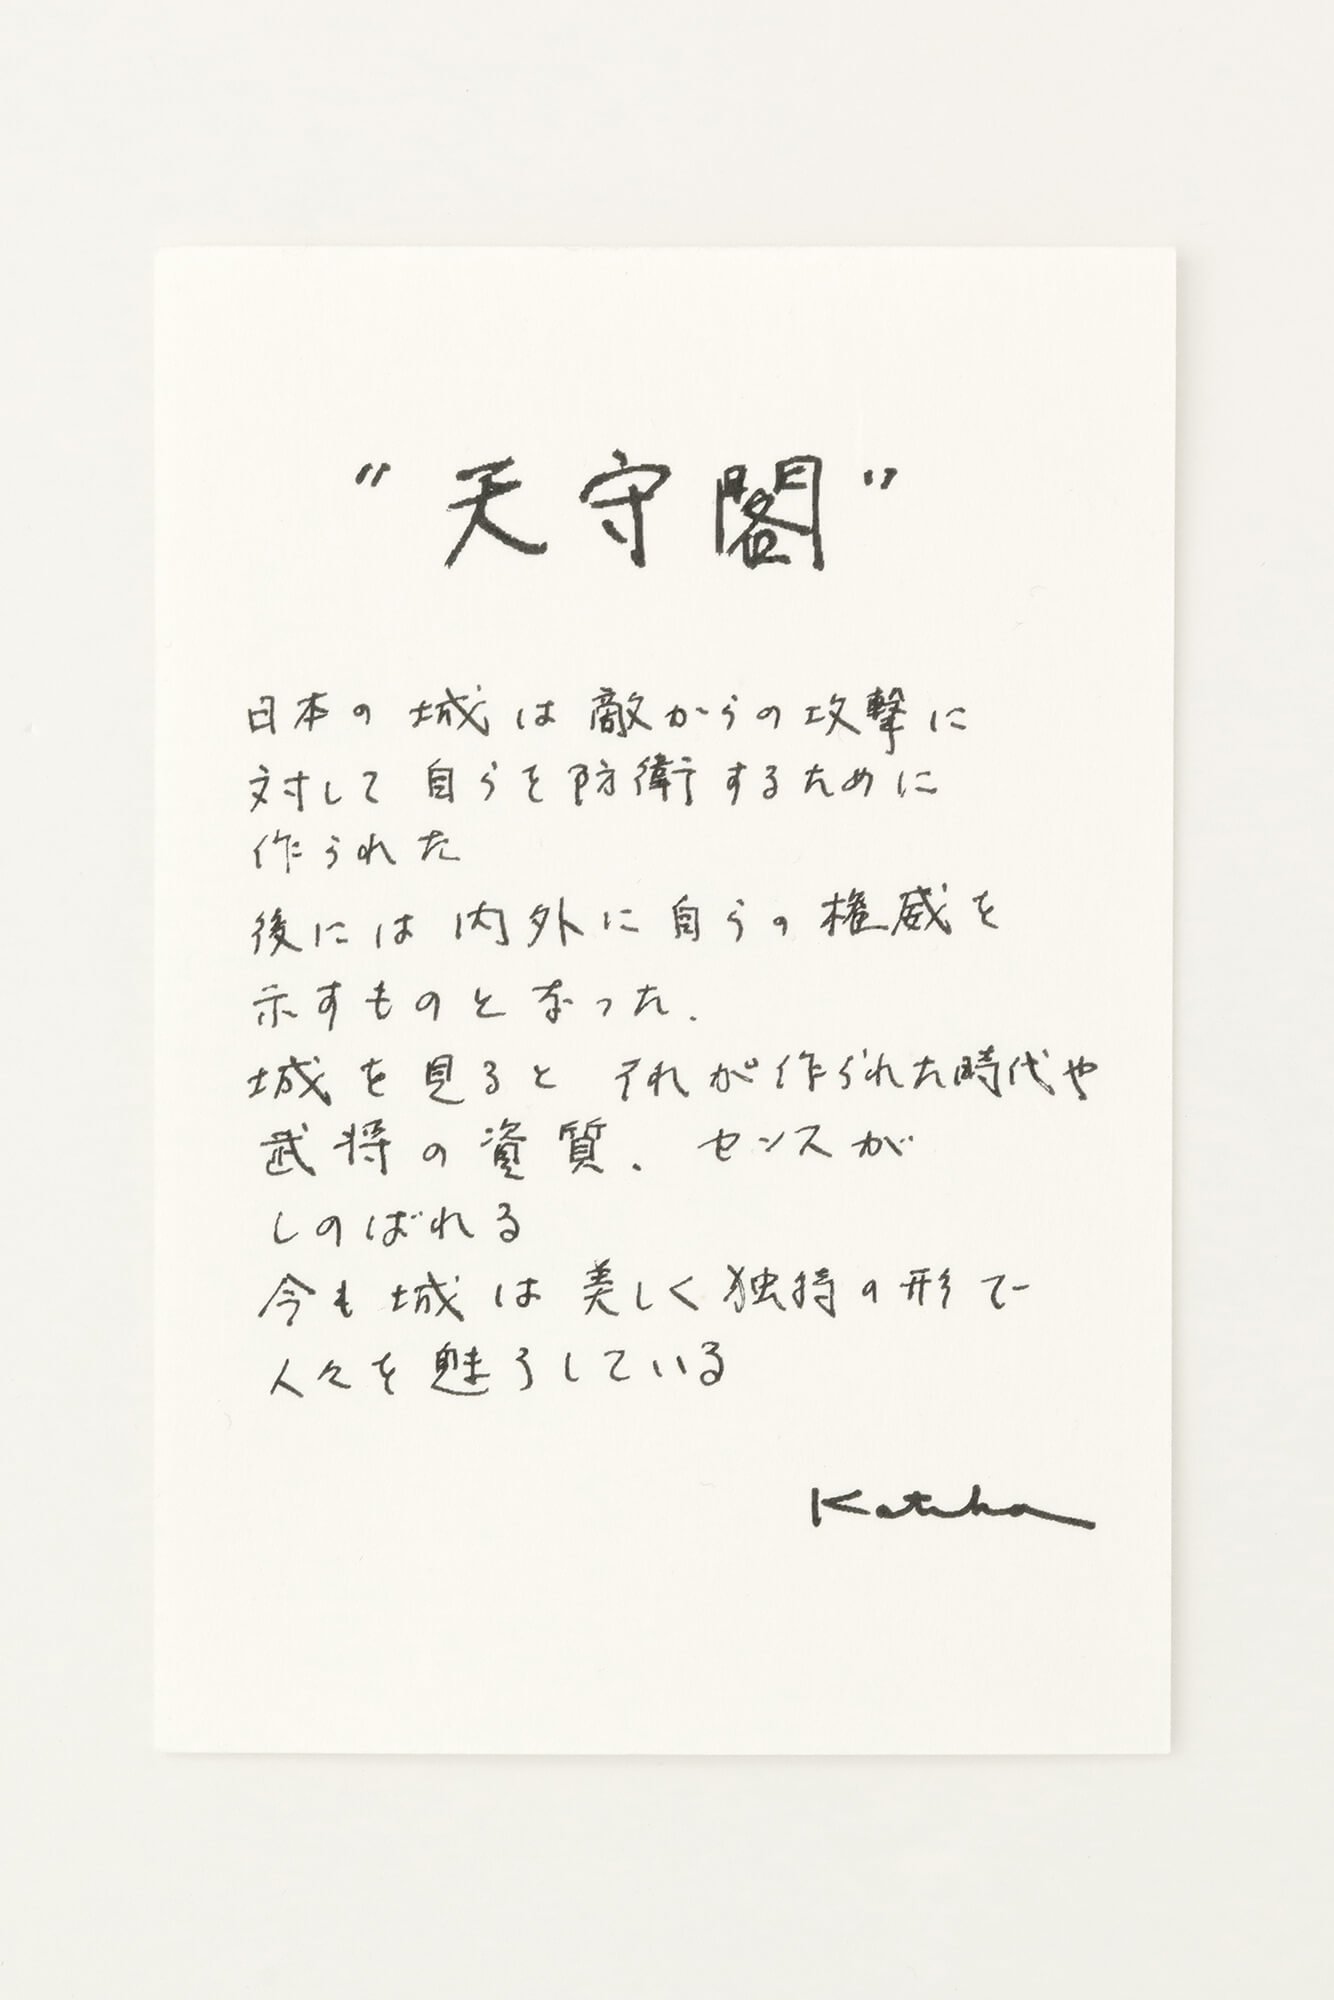 "天守閣"
日本の城は敵からの攻撃に
対して自らを防衛するために
作られた
後には内外に自らの権威を
示すものとなった.
城を見るとそれが作られた時代や
武将の資質、センスが
しのばれる
今も城は美しく独特の形で
人々を魅うしている